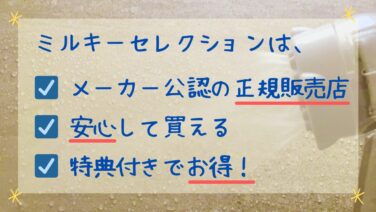 ミルキーセレクションは、
メーカー公認の正規販売店
安心して買える
特典付きでお得！